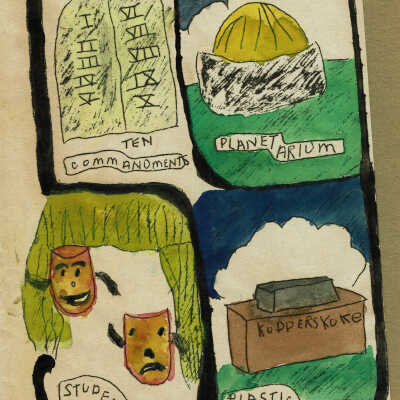 TEN
COMMANDMENTS
PLANET
ARIUM
KODDERSKOKE
STUDE
PLASTIC